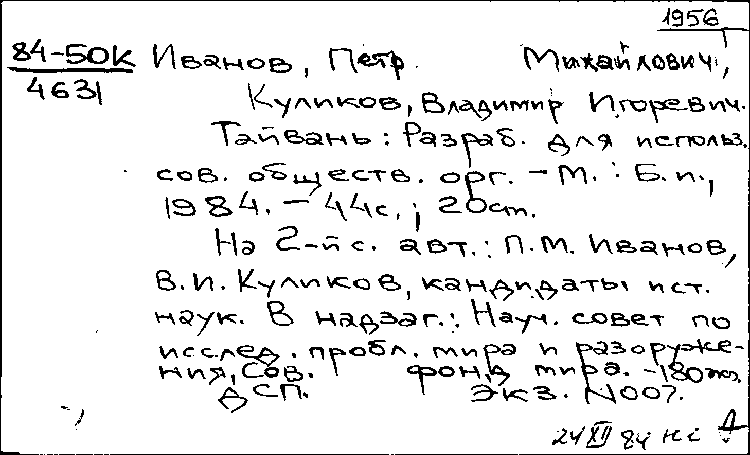 1956
84-50К Иванов, Петр Михайлович,
4631
Куликов, Владимир Игоревич.
Тайвань : Разраб. для использ.
сов. обществ. орг. – М. : Б.и.,
1984. – 44с. ; 20см.
На 2-й с. авт.: П.М. Иванов,
В.И. Куликов, кандидаты ист.
наук. В надзаг.: Науч. совет по
исслед. пробл. мира и разоруже-
ния, Сов. фонд мира. - 180экз.
ДСП. Экз. N007.
24 XII 84